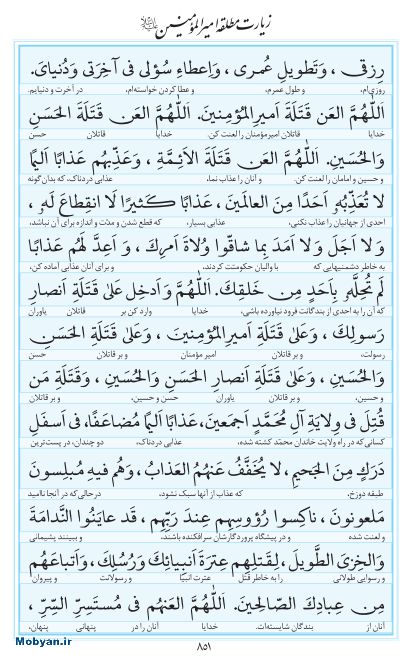 زیارت مطلقه امیرالمؤمنین علیه‌السلام
رِزقی ، وَتَطویلِ عُمری ، وَاِعطاءِ سُؤلی فی آخِرَتی وَدُنیایَ.
روزی‌ام، و طول عمرم، و عطا کردن خواسته‌ام، در آخرت و دنیایم.
اَللّٰهُمَّ العَن قَتَلَةَ اَمیرِالمُؤمِنینَ. اَللّٰهُمَّ العَن قَتَلَةَ الحَسَنِ
خدایا قاتلان امیرمؤمنان را لعنت کن. خدایا قاتلان حسن
وَالحُسَینِ. اَللّٰهُمَّ العَن قَتَلَةَ الاَئِمَّةِ ، وَعَذِّبهُم عَذابًا اَلیمًا
و حسین و امامان را لعنت کن. و آنان را عذاب نما، عذابی دردناک، که بدان گونه
لا تُعَذِّبُهٗ اَحَدًا مِنَ العالَمینَ، عَذابًا کَثیرًا لَا انقِطاعَ لَهٗ ،
احدی از جهانیان را عذاب نکنی، عذابی بسیار، که قطع شدن و مدّت و اندازه برای آن نباشد،
وَلا اَجَلَ وَلا اَمَدَ بِما شاقّوا وُلاةَ اَمرِکَ ، وَ اَعِدَّ لَهُم عَذابًا
به خاطر دشمنیهایی که با والیان حکومتت کردند، و برای آنان عذابی آماده کن،
لَم تُحِلَّهٗ بِاَحَدٍ مِن خَلقِکَ. اَللّٰهُمَّ وَاَدخِل عَلیٰ قَتَلَةِ اَنصارِ
که آن را به احدی از بندگانت فرود نیاورده باشی، خدایا وارد کن بر قاتلان یاوران
رَسولِکَ ، وَعَلیٰ قَتَلَةِ اَمیرِالمُؤمِنینَ ، وَعَلیٰ قَتَلَةِ الحَسَنِ
رسولت، و بر قاتلان امیر مؤمنان و بر قاتلان حسن
وَالحُسَینِ ، وَعَلیٰ قَتَلَةِ اَنصارِ الحَسَنِ وَالحُسَینِ ، وَقَتَلَةِ مَن
و حسین، و بر قاتلان یاوران حسن و حسین، و بر قاتلان
قُتِلَ فی وِلایَةِ آلِ مُحَمَّدٍ اَجمَعینَ، عَذابًا اَلیمًا مُضاعَفًا، فی اَسفَلِ
کسانی‌که در راه ولایت خاندان محمّد کشته شده، عذابی دردناک، دو چندان، در پست‌ترین
دَرَكٍ مِنَ الجَحیمِ، لا یُخَفَّفُ عَنهُمُ العَذابُ ، وَهُم فیهِ مُبلِسونَ
طبقه دوزخ، که عذاب از آنها سبک نشود، درحالی‌که در آنجا ناامید
مَلعونونَ ، ناکِسوا رُؤوسِهِم عِندَ رَبِّهِم ، قَد عایَنُوا النَّدامَةَ
و لعنت شده و در پیشگاه پروردگارشان سرافکنده باشند، و ببینند پشیمانی
وَالخِزیَ الطَّویلَ، لِقَتلِهِم عِترَةَ اَنبِیائِکَ وَرُسُلِکَ، وَاَتباعَهُم
و رسوایی طولانی را به خاطر قتل عترت انبیا و رسولانت و پیروان
مِن عِبادِکَ الصّالِحینَ. اَللّٰهُمَّ العَنهُم فی مُستَسِرِّ السِّرِّ ،
آنان از بندگان شایسته‌ات. خدایا آنان را در پنهانی پنهان،
Mobyan.ir
۸۵۱